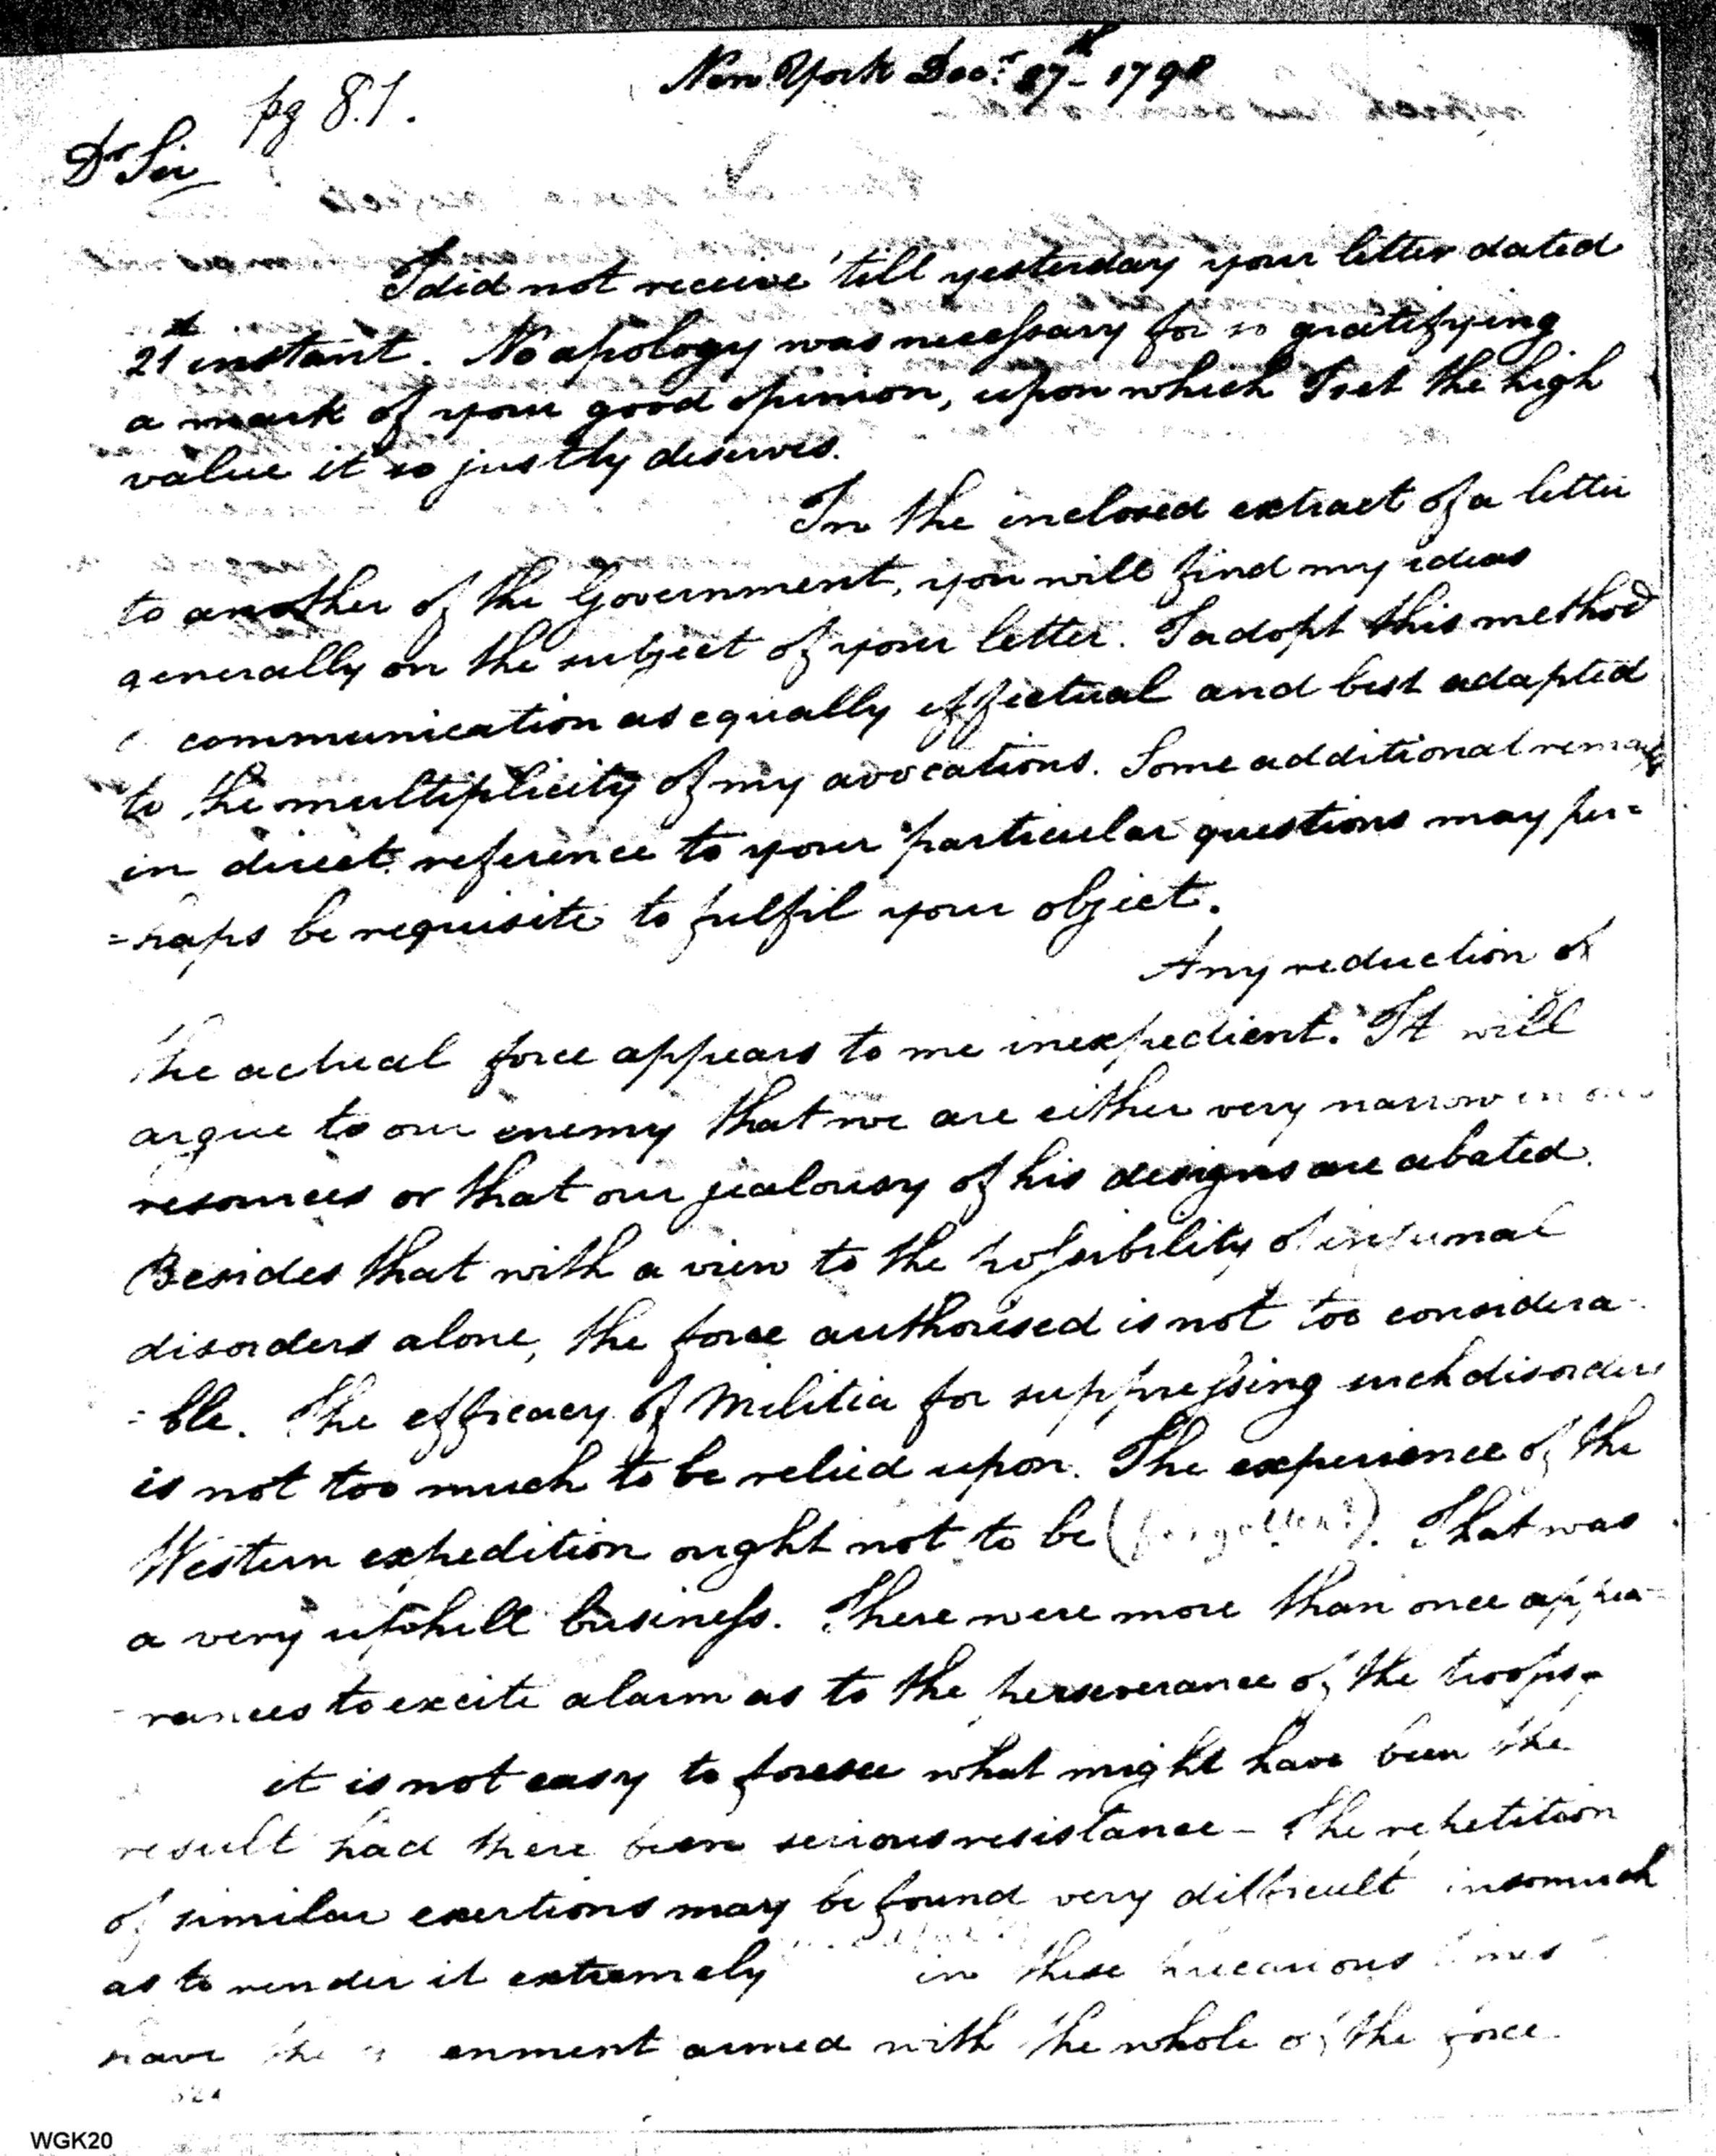 New York Decr. 27th- 1798
pg 81.
Dr Sir
I did not receive 'till yesterday your letter dated
21st instant. No apology was necessary for so gratifying
a mark of your good opinion, upon which I set the high
value it so justly deserves.
In the inclosed extract of a letter
to another of the Government, you will find my ideas
generally on the subject of your letter. I adopt this method
communication as equally effectual and best adapted
to the multiplicity of my avocations. Some additional remarks
in direct reference to your particular questions may per=
=haps be requisite to fulfil your object.
Any reduction of
the actual force appears to me inexpedient. It will
argue to our enemy that we are either very narrow in our
resources or that our jealousy of his designs are abated.
Besides that with a view to the possibility of internal
disorders alone, the force authorised is not too considera-
=ble. The efficacy of Militia for suppressing such disorders
is not too much to be relied upon. The experience of the
Western expedition ought not to be (forgotten?). That was
a very uphill business. There were more than once appea=
-rances to excite alarm as to the perseverance of the troops
it is not easy to foresee what might have been the
result had there been serious resistance - The repetition
of similar exertions may be found very difficult insomuch
as to render it extremely in these precarious times
have the enment armed with the whole of the force
WGK20